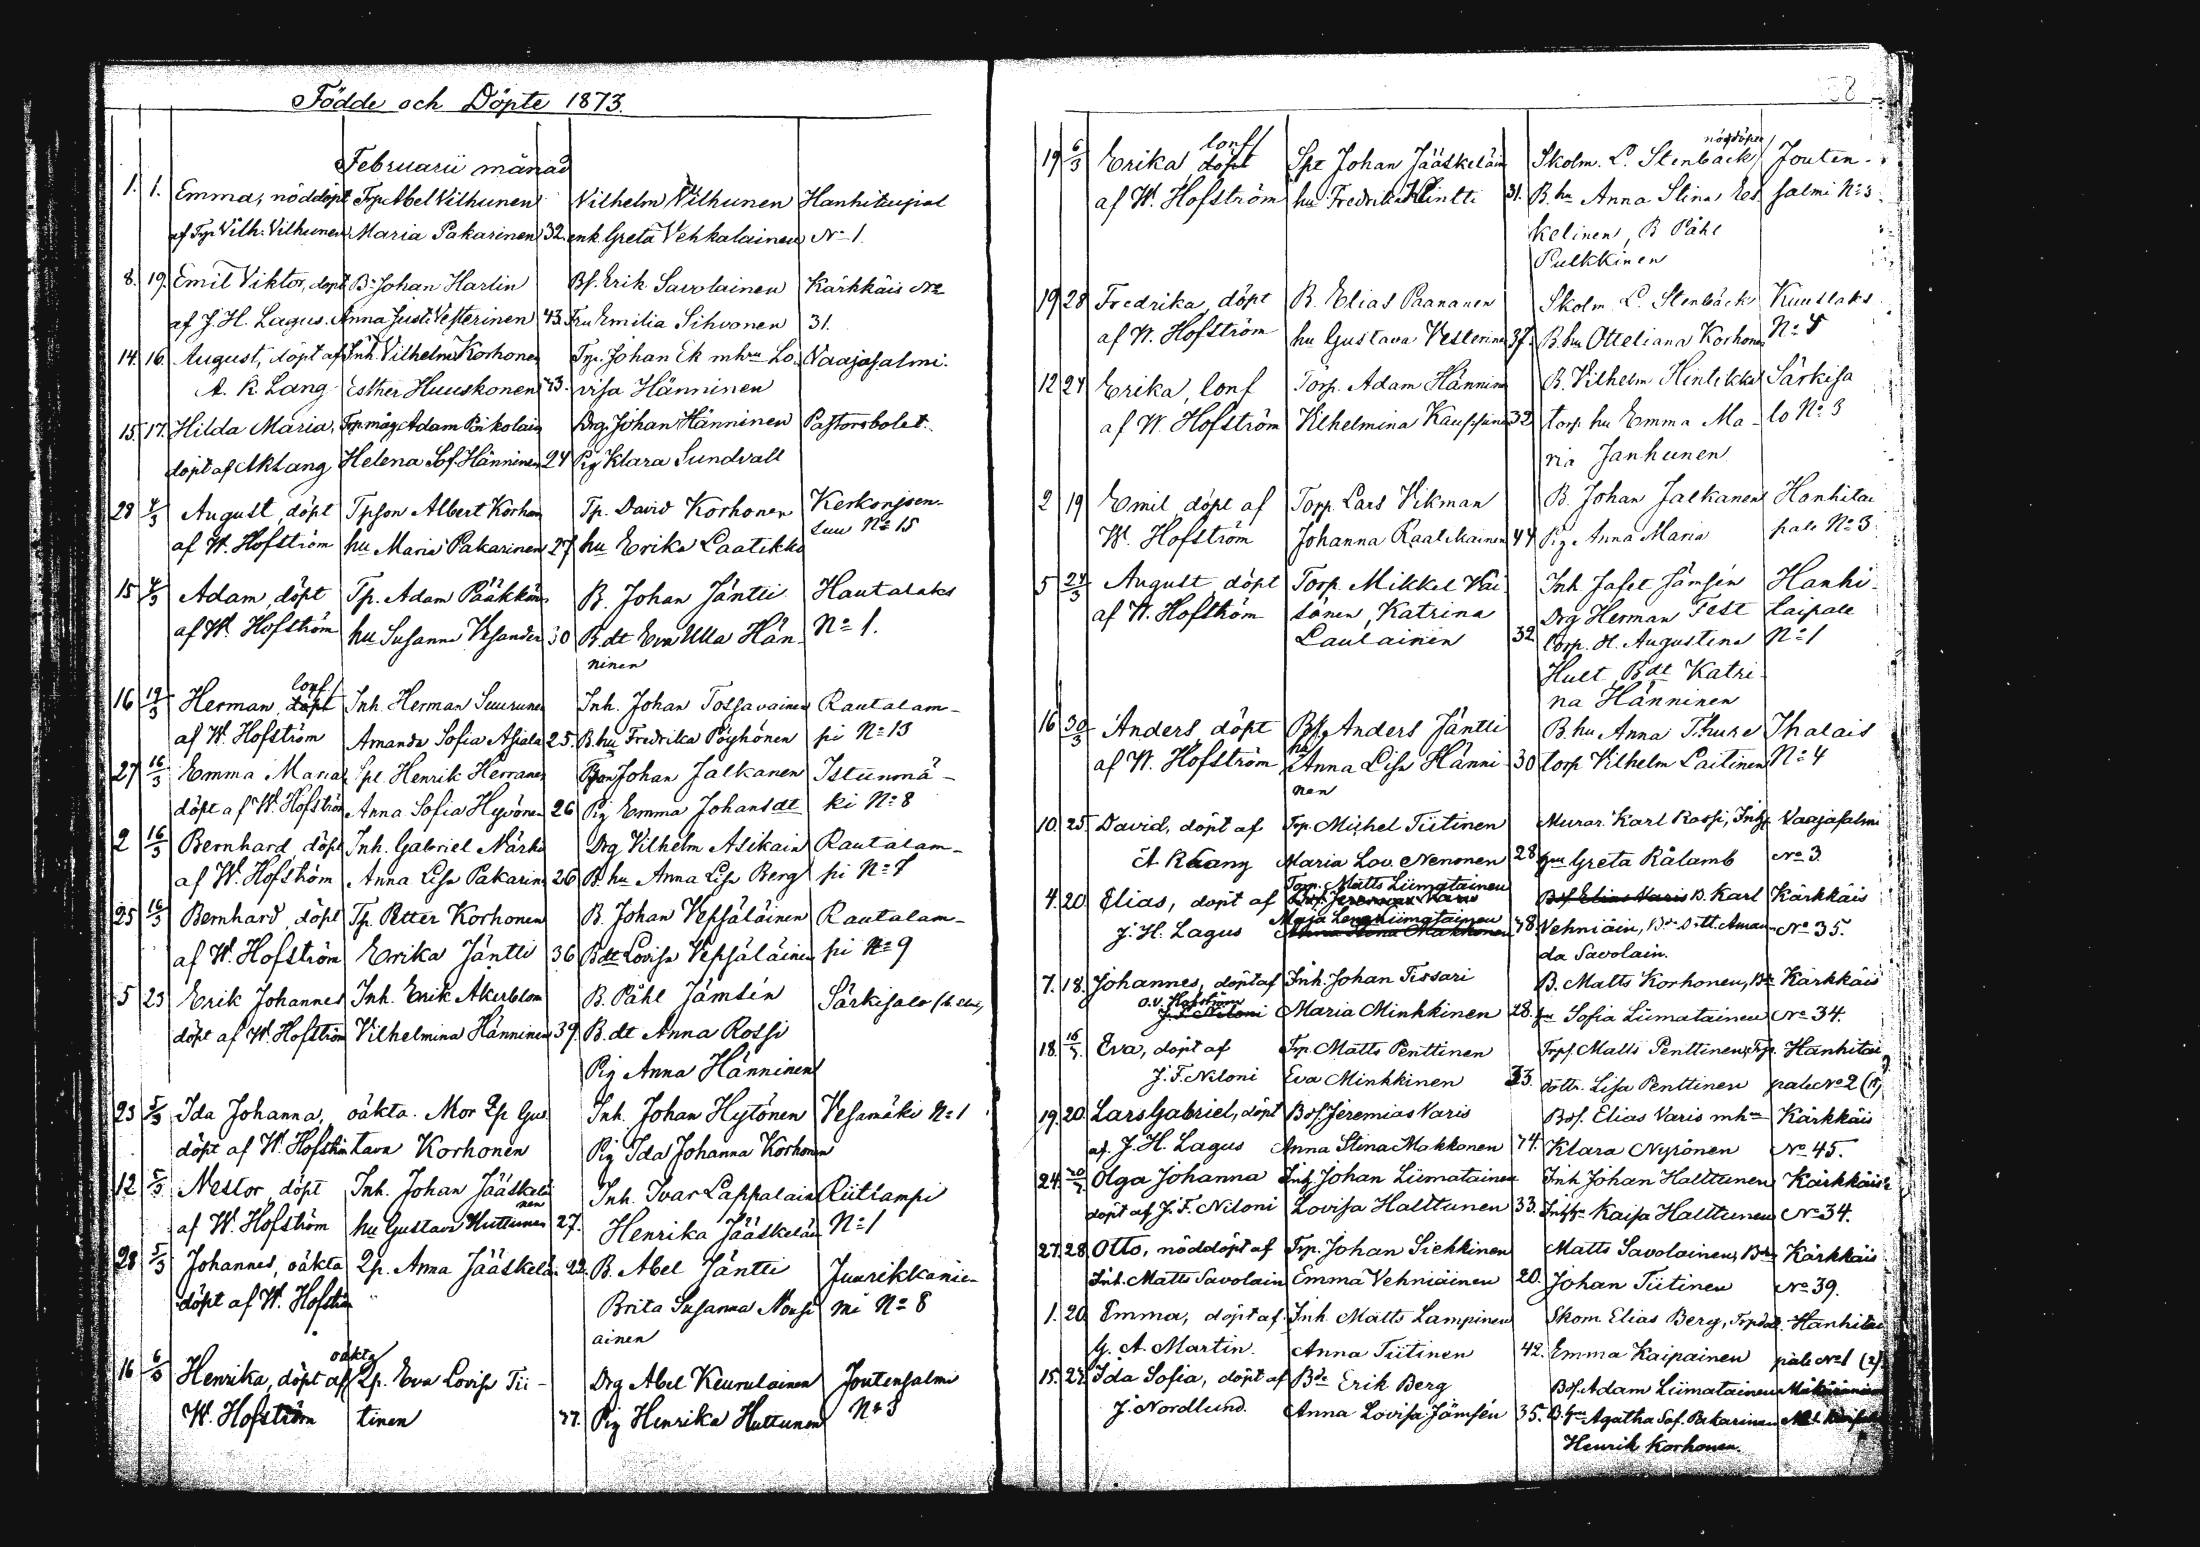 Födde och Döpte 1873.
Februarii månad
1. 1. Emma, nöddöpt Trp. Abel Vilhunen Vilhelm Vilhunen Hanhitaipal
af Trp Vilh. Vilhunen Maria Pakarinen 32. enk. Greta Vehkalainen No 1.
8. 19. Emil Viktor, döpt B. Johan Harlin Bs. Erik Savolainen Kärkkäis No
af J. H. Lagus. Anna Just. Vesterinen 43. Fru Emilia Sihvonen 31.
14. 16. August, döpt af Inh. Vilhelm Korhonen Trp. Johan Ek mhu Lo- Vaajasalmi.
A. R. Lang Esther Huuskonen 43. visa Hänninen
15. 17. Hilda Maria, Trp.måg Adam Pirkolain Drg. Johan Hänninen Pastorsbolet.
döpt af A R Lang Helena Sof. Hänninen 24 Pig Klara Sundvall
28 4/3 August, döpt Tpson Albert Korhon Tp. David Korhonen Kerkonjoen-
af W. Hofström hu Maria Pakarinen 27 hu Erika Laatikka suu No 15
15 4/3 Adam, döpt Tp. Adam Pääkkön B. Johan Jäntti Hautalaks
af W. Hofström hu Susanna Vesander 30 B.dt Eva Ulla Hän- No 1.
ninen
lonf
16 19/3 Herman, döpt Inh. Herman Suurunen Inh. Johan Tossavainen Rautalam-
af W. Hofström Amanda Sofia Asiala 25. B.hu Fredrika Pöyhönen pi No 13
27 16/3 Emma Maria Spl. Henrik Herranen Johan Jalkanen Istunmä-
döpt af W. Hofström Anna Sofia Hyvönen 26 Pig Emma Johansdt ki No 8
2 16/3 Bernhard, döpt Inh. Gabriel Närhi Drg Vilhelm Asikain Rautalam-
af W. Hofström Anna Lisa Pakarin 26 B. hu Anna Lisa Berg pi No 7
25 16/3 Bernhard, döpt Tp. Petter Korhonen B. Johan Vepsäläinen Rautalam-
af W. Hofström Erika Jäntti 36 Bdt Lovisa Vepsäläinen pi No 9
5 23 Erik Johannes Inh. Erik Åkerblom B. Påhl Jämsén Särkisalo
döpt af W. Hofström Vilhelmina Hänninen 39. B. dt Anna Rossi
Pig Anna Hänninen
23 5/3 Ida Johanna, oäkta. Mor Qp Gus Inh. Johan Hytönen Vesamäki No 1
döpt af W. Hofström tava Korhonen Pig Ida Johanna Korhonen
12 5/3 Nestor, döpt Inh. Johan Jääskeläi Inh. Ivar Lappalain Riitlampi
nen
af W. Hofström hu Gustava Huttunen 27. Henrika Jääskeläi No 1
28 5/3 Johannes, oäkta Qp. Anna Jääskeläi 22. B. Abel Jäntti Juurikkanie-
döpt af W. Hofström Brita Susanna Nousi mi No 8
ainen
oäkta
16 6/3 Henrika, döpt af Qp. Eva Lovisa Tii- Drg Abel Keurulainen Joutensalmi
W. Hofström tinen 47. Pig Henrika Huttunen No 3
lonf nöddöper
19 6/3 Erika, döpt Spl Johan Jääskeläin Skolm. L. Stenbäck Jouten-
af W. Hofström hu Fredrika Klintti 31. B. hu Anna Stina Es- salmi No 3.
kelinen, B Påhl
Pulkkinen
19 28 Fredrika, döpt B. Elias Paananen Skolm. L. Stenbäck Kuuslaks
af W. Hofström hu Gustava Vesterin 37. B. hu Otteliana Korhonen No 4
12 24 Erika, lonf Torp. Adam Hänninen B. Vilhelm Hintikka Särkisa
af W. Hofström Vilhelmina Kauppinen 32 torp hu Emma Ma- lo No 3
ria Janhunen
2 19 Emil, döpt af Torp. Lars Vikman B. Johan Jalkanen Hanhitai
W. Hofström Johanna Raatikainen 44 Pig Anna Maria pale No 3.
5 24/3 August döpt Torp. Mikkel Väi- Inh Jafet Jämsén Hanhi-
af W. Hofström sänen, Katrina Drg Herman Fest taipale
Laulainen 32 torp. d. Augustina No 1
Hult, Bdt Katri-
na Hänninen
16 30/3 Anders, döpt Bs. Anders Jäntti B. hu Anna Thure Ihalais
af W. Hofström hu Anna Lisa Hänni- 30 torp Vilhelm Laitinen No 4
nen
10. 25. David, döpt af Trp. Michel Tiitinen Murar. Karl Rossi, Inh. Vaajasalmi
A R Lang Maria Lov. Nenonen 28. Greta Rålamb No 3.
Torp. Matts Liimatainen
4. 20. Elias, döpt af Bof. Jeremias Varis Bof. Elias Varis B. Karl Kärkkäis
Maja Lena Liimatainen
J. H. Lagus Anna Stina Makkonen 48. Vehniäin, Dott. Aman- No 35.
da Savolain.
7. 18. Johannes, döpt af Inh. Johan Tissari B. Matts Korhonen, Kärkkäis
O. V. Hofström
J. F. Niloni Maria Minkkinen 28. Sofia Liimatainen No 34.
18. Eva, döpt af Trp. Matts Penttinen Trps. Matts Penttinen, Trp. Hanhitai
J. F. Niloni Eva Minkkinen 33. dottr. Lisa Penttinen pale No 2
19. 20. Lars Gabriel, döpt Bof. Jeremias Varis Bof. Elias Varis mhu Kärkkäis
af J. H. Lagus Anna Stina Makkonen 44. Klara Nyrönen No 45.
24. Olga Johanna Inh. Johan Liimatainen Inh Johan Halttunen Kärkkäis
döpt af J. F. Niloni Lovisa Halttunen 33. Kaisa Halttunen No 34.
27. 28. Otto, nöddöpt af Trp. Johan Siekkinen Matts Savolainen, Kärkkäis
Inh. Matts Savolain Emma Vehniäinen 20. Johan Tiitinen No 39.
1. 20. Emma, döpt af Inh. Matts Lampinen Skom. Elias Berg, Hanhitai
G. A. Martin. Anna Tiitinen 42. Emma Kaipainen pale No 1 (2).
15. 27. Ida Sofia, döpt af Erik Berg Bof. Adam Liimatainen
J. Nordlund. Anna Lovisa Jämsén 35. Agatha Sof. Pakarinen
Henrik Korhonen.